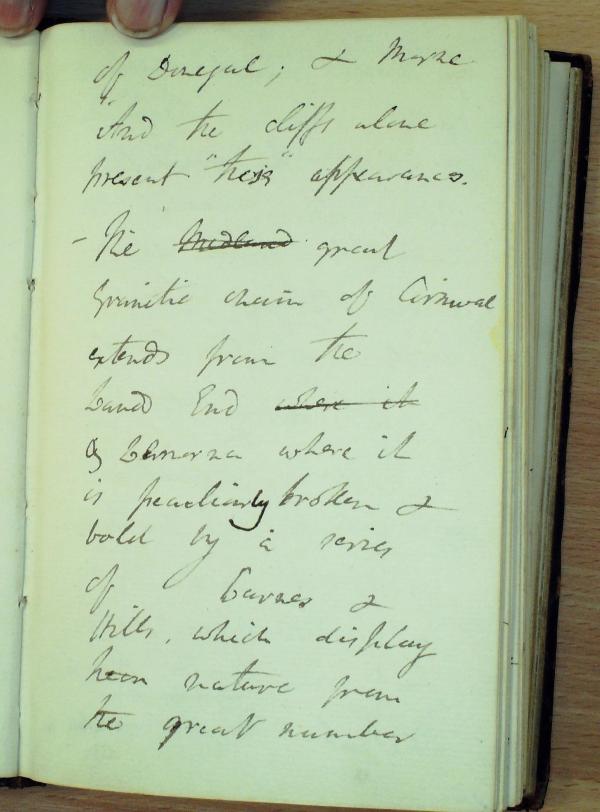 of Donegal; & Morne
And the cliffs alone
present "this" appearance.
- The Midland great
Granitic chain of Cornwal
extends from the
Lands End where it
& Lamorna where it
is peculiarly broken &
bold by a series
of Carnes &
Hills, which display
nature from
the great number